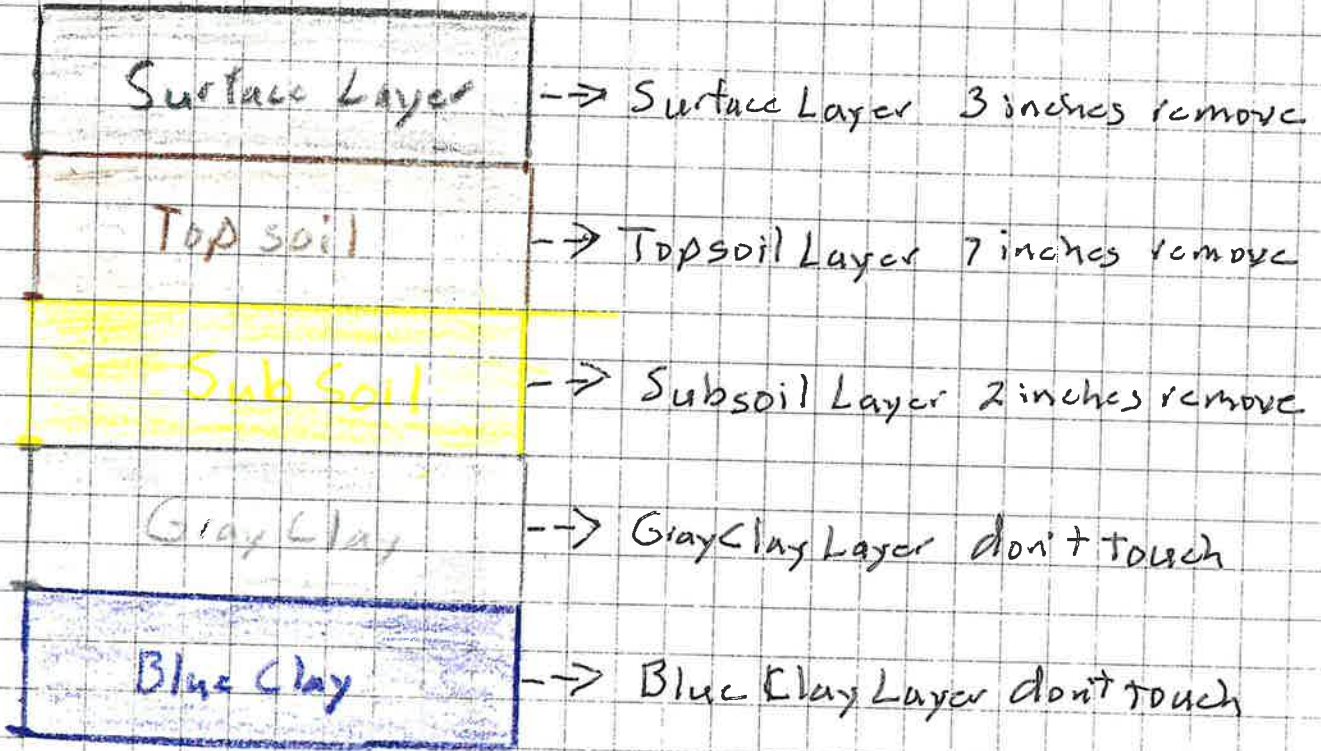 Surface Layer --> Surface Layer 3 inches remove
Topsoil --> Topsoil Layer 7 inches remove
SubSoil --> Subsoil Layer 2 inches remove
Gray Clay --> Gray Clay Layer don't touch
Blue Clay --> Blue Clay Layer don't touch